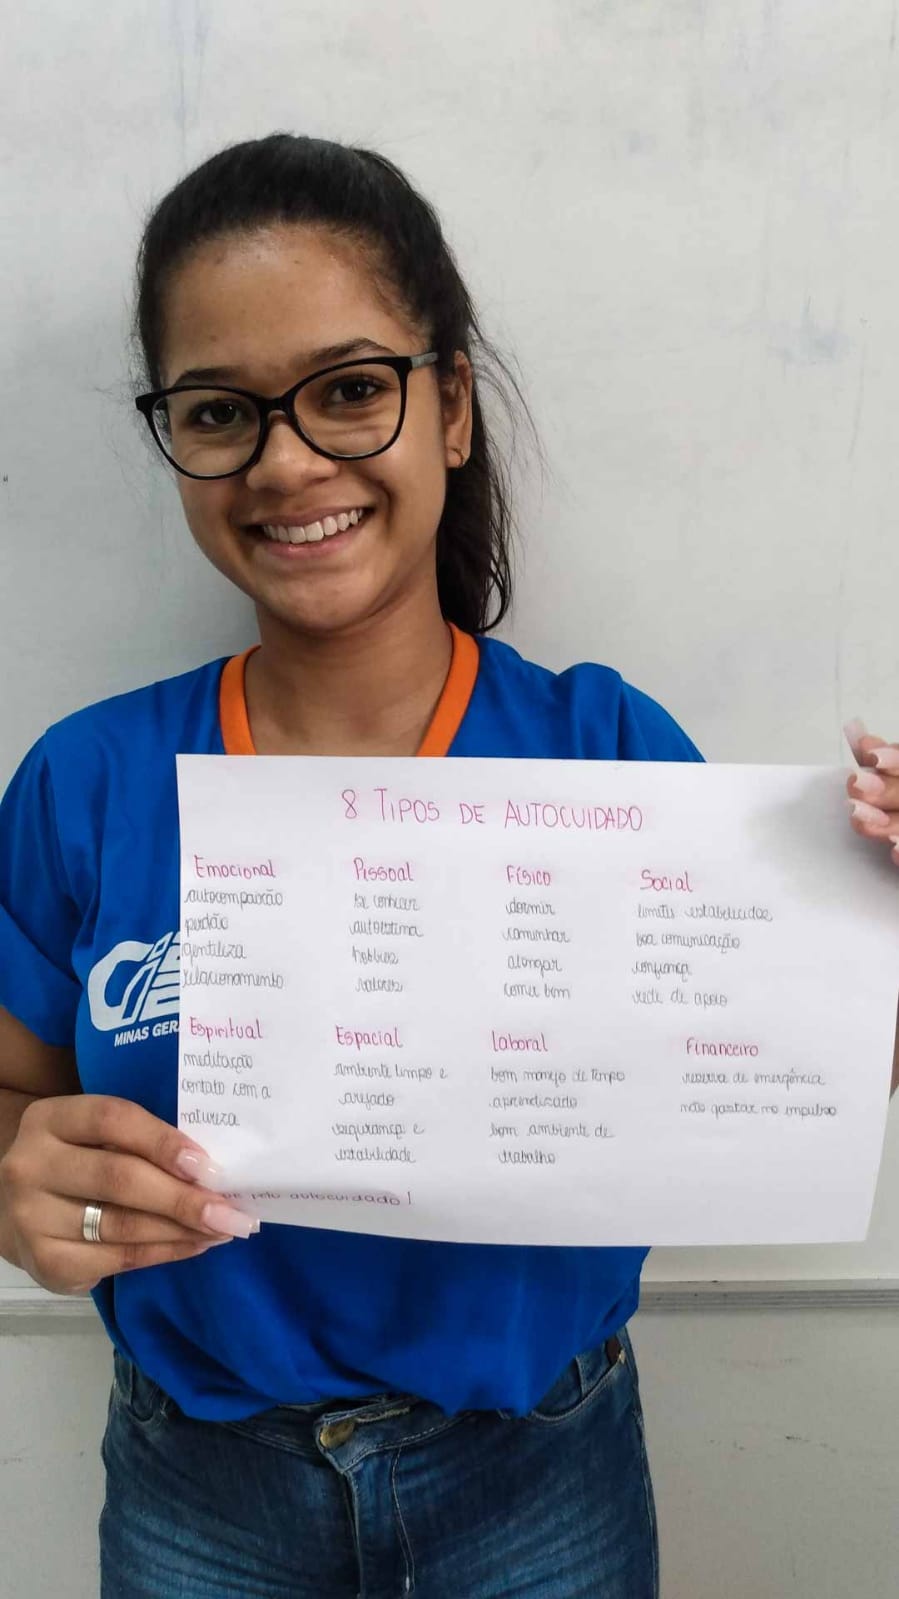 8 TIPOS DE AUTOCUIDADO
Emocional
autocompaixão
perdão
gentileza
relacionamento
Pessoal
se conhecer
autoestima
hobbies
valores
Físico
dormir
caminhar
alongar
comer bem
Social
limites estabelecidos
boa comunicação
confiança
rede de apoio
Espiritual
meditação
contato com a
natureza
Espacial
ambiente limpo e
arejado
segurança e
estabilidade
Laboral
bom manejo de tempo
aprendizado
bom ambiente de
trabalho
Financeiro
reserva de emergência
não gastar no impulso
pelo autocuidado!
MINAS GER